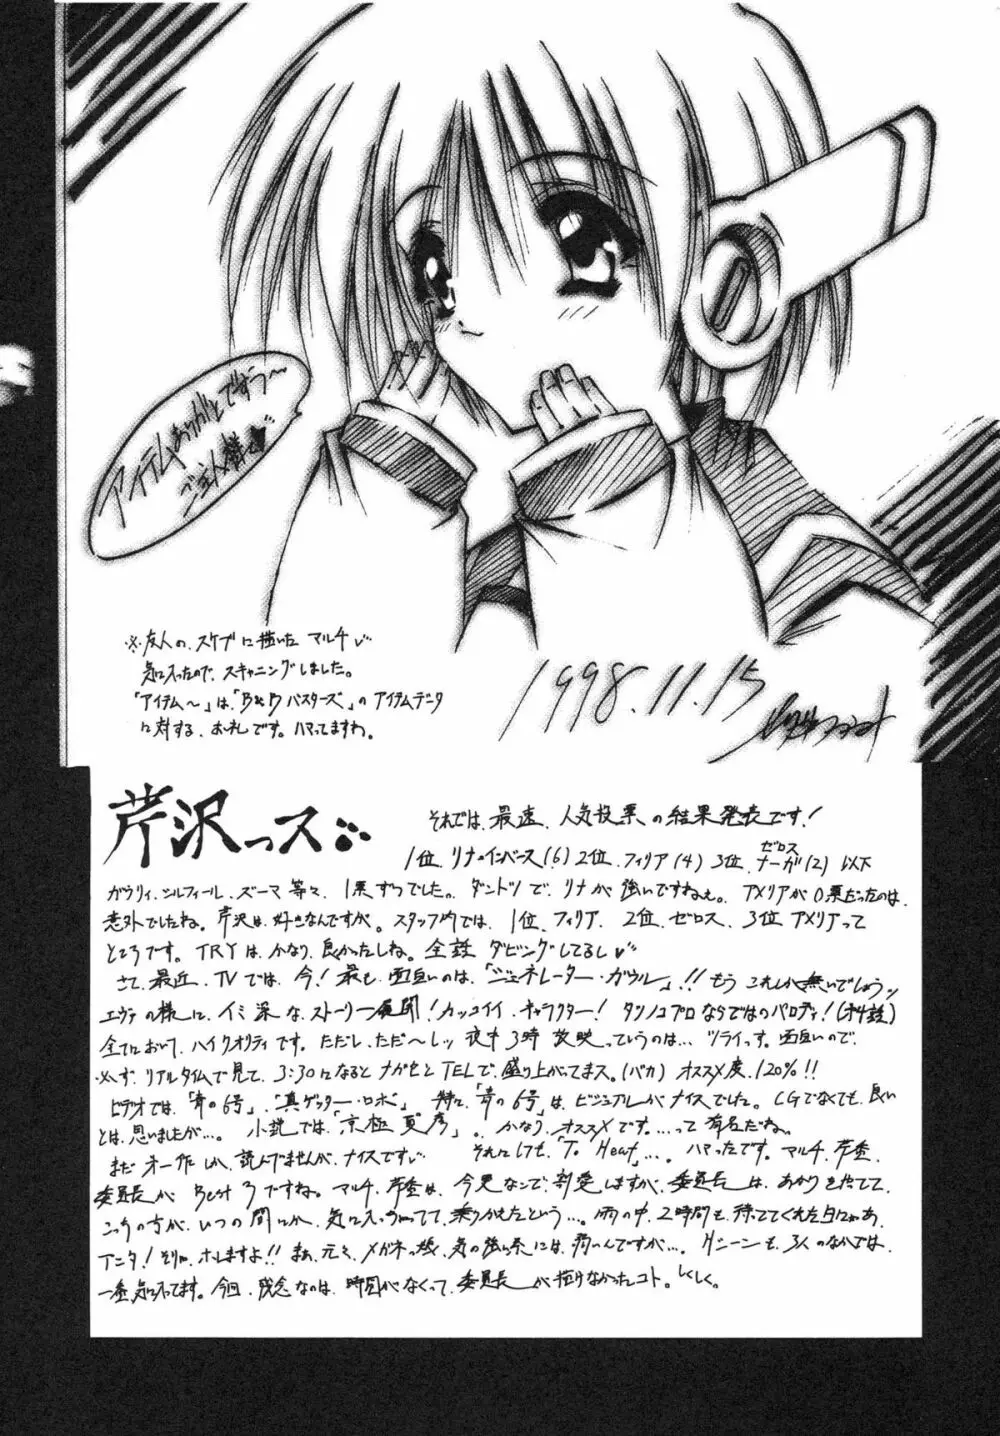 アイテムありがとですう〜
ご主人様
※友人の、スケブに描いた マルチ
気に入ったので、スキャニングしました。
「アイテム〜」は、「B&Dバスターズ」の アイテムデータ
に対する、お礼です。ハマってますわ。
1998.11.15
芹沢っス
それでは、最速、人気投票の結果発表です!
1位、リナ=インバース(6) 2位、フィリア(4) 3位、ゼロス ナーガ(2) 以下
ガウリィ、シルフィール、ズーマ 等々、1票ずつでした。ダントツで、リナが強いですねぇ。アメリアが0票だったのは、
意外でしたね。芹沢は、好きなんですが。スタッフ内では、1位、フィリア、2位、ゼロス、3位アメリアって
ところです。TRYは、かなり、良かったしね。全話 ダビングしてるし
さて、最近、TVでは、今!最も、面白いのは、「ジェネレーター・ガウル」!!もう これしか無いでしょうッ
エヴァの様に、イミ深な、ストーリー展開!カッコイイ、キャラクター!タツノコプロならではのパロディ!(オイ話)
全てにおいて、ハイクオリティです。ただし、ただ〜しッ 夜中3時放映っていうのは… ツライっす。面白いので、
必ず、リアルタイムで見て、3:30になると ナガセとTELで、盛り上がってまス。(バカ) オススメ度、120%!!
ビデオでは、「青の6号」、「真ゲッター・ロボ」 特に、「青の6号」は、ビジュアルがナイスでした。CGでなくても、良い
とは、思いましたが…。 小説では、「京極夏彦」。かなり、オススメです。…って 有名だね。
まだ 一作しか、読んでませんが、ナイスです それにしても、「To Heart」…。ハマったです。マルチ、芹香、
委員長が Best 3ですね。マルチ、芹香は、今更なんで、割愛しますが、委員長は、あかりを立てて、
こっちの方が、いつの間にか、気に入っちゃってて、乗りかえたという…。雨の中、2時間も、待っててくれた日にゃあ、
アニタ!そりゃ、ホレますよ!!まぁ、元々、メガネっ娘、気の強い系には、弱いんですが…。Hシーンも、3人のなかでは、
一番気に入ってます。今回、残念なのは、時間がなくって、委員長が描けなかったコト。しくしく。